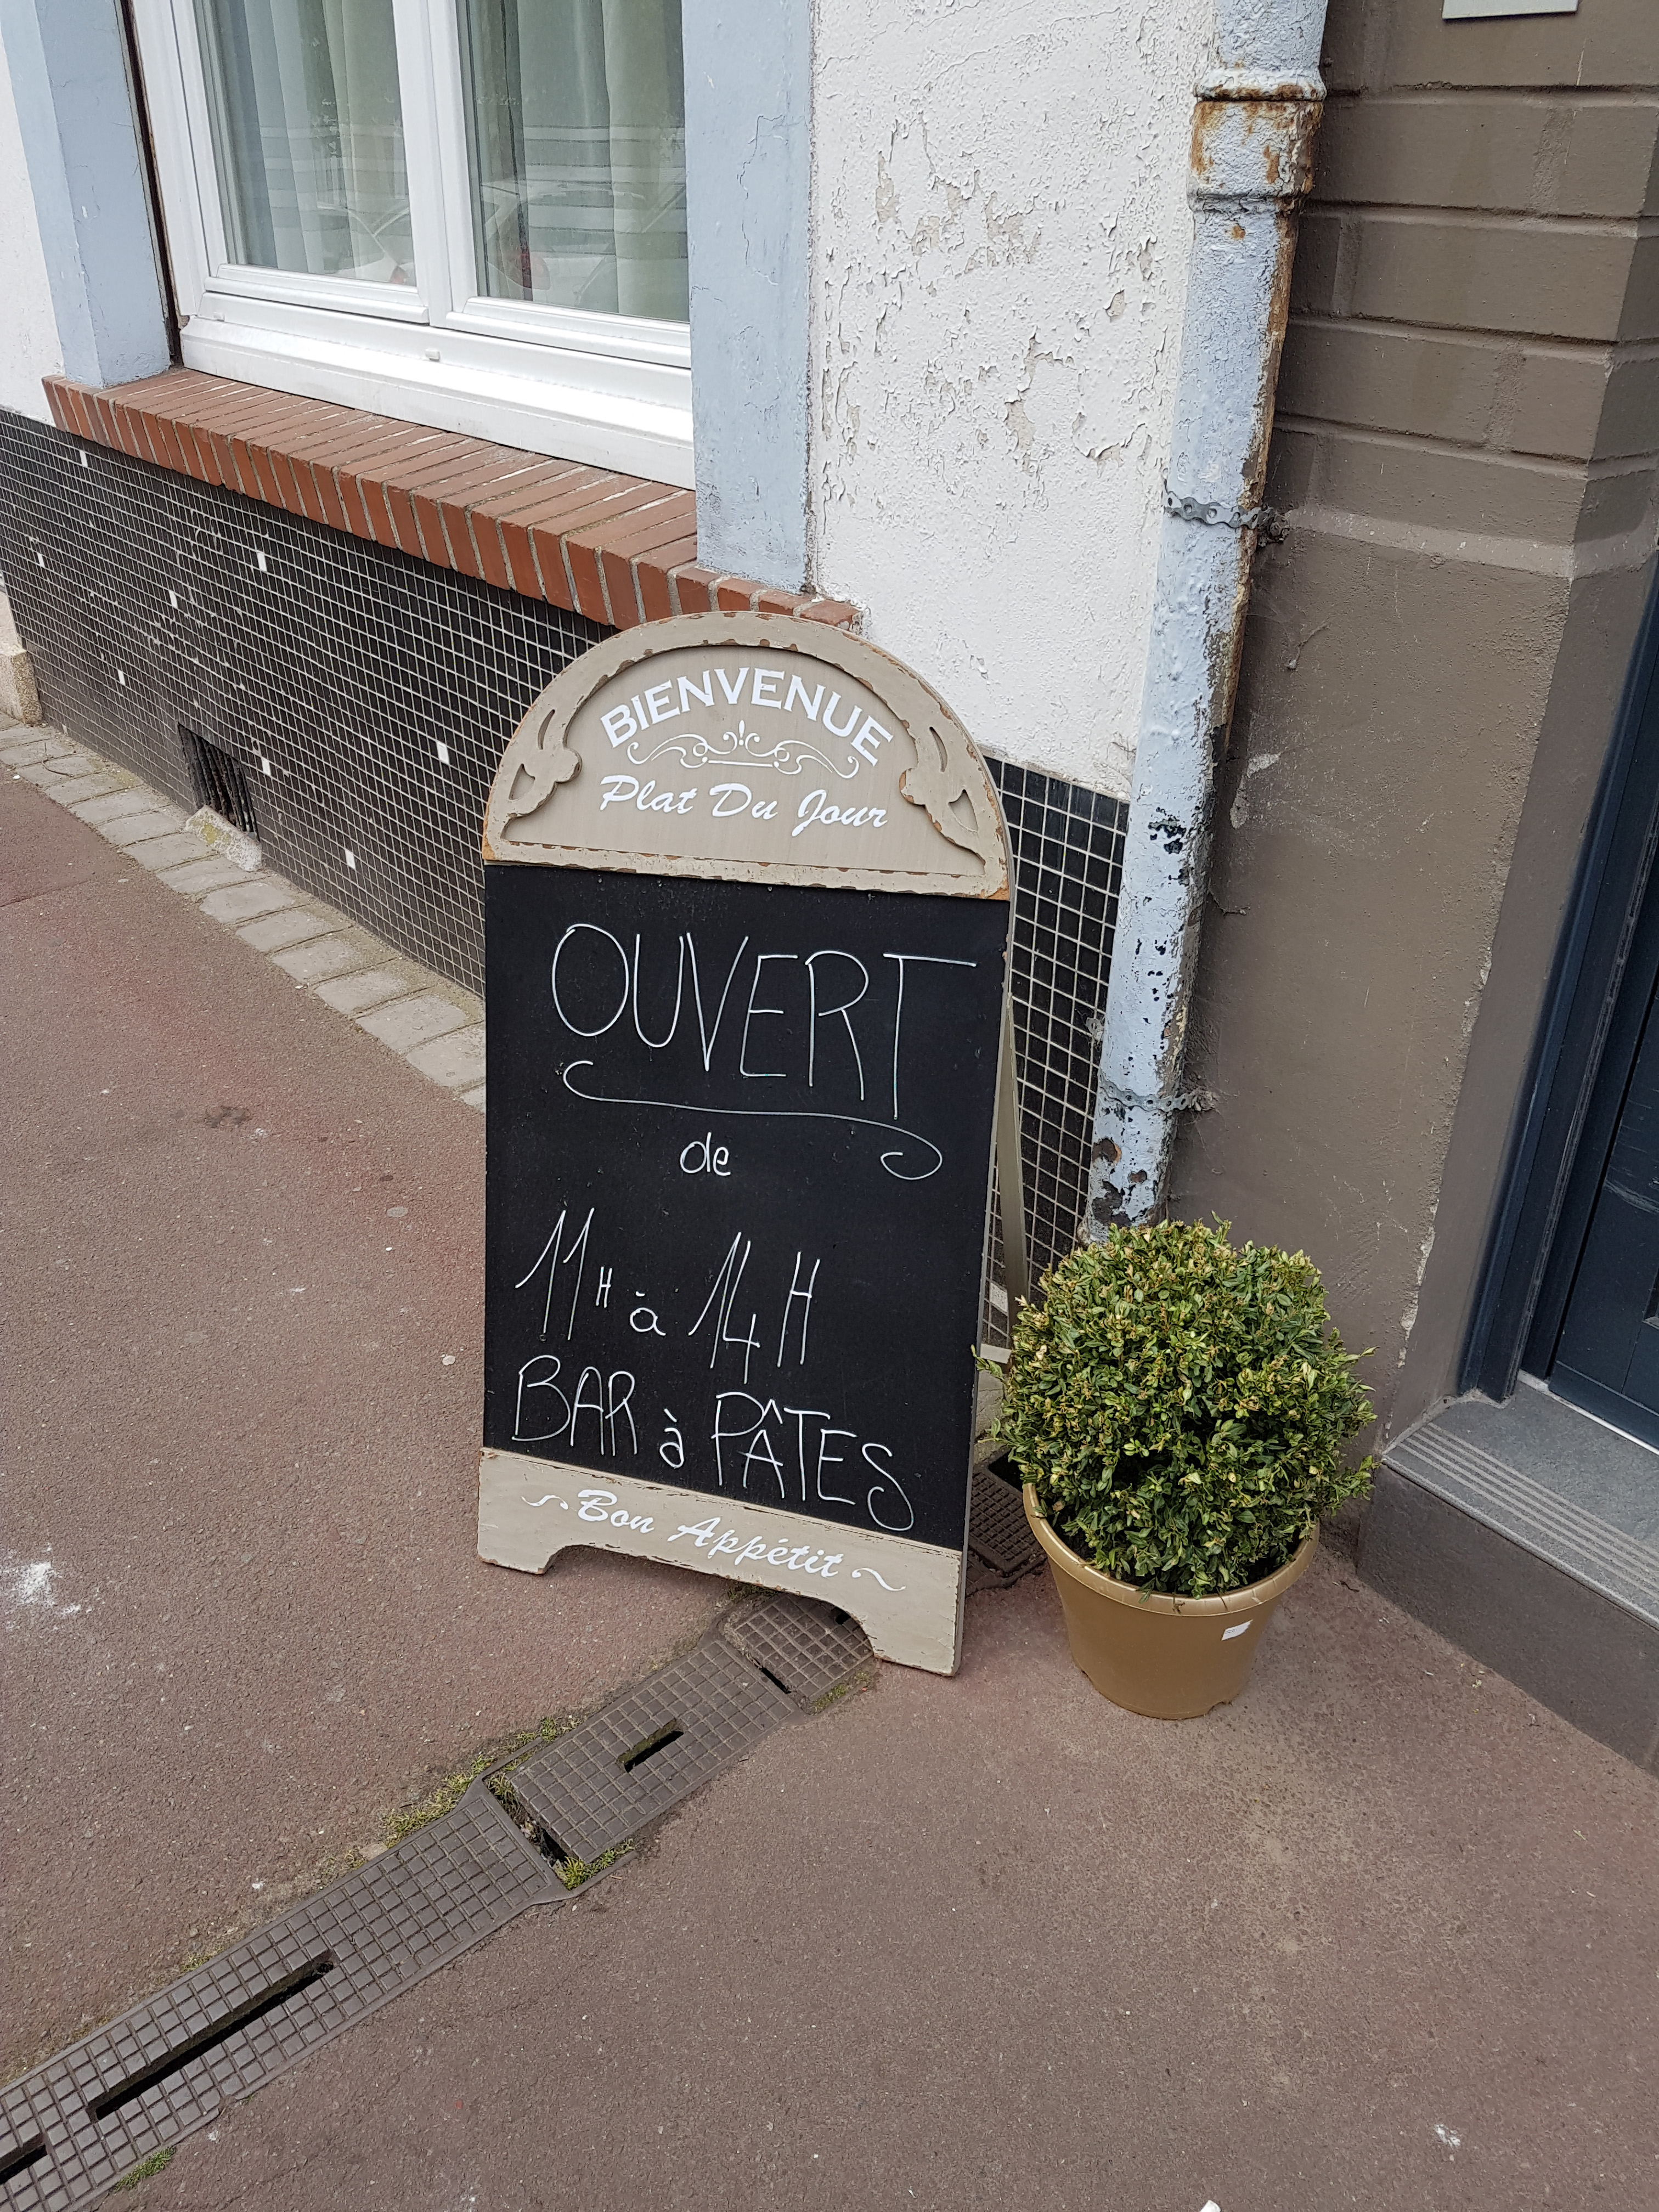 BIENVENUE
Plat Du Jour
OUVERT
de
11H à 14H
BAR à PÂTES
Bon Appétit